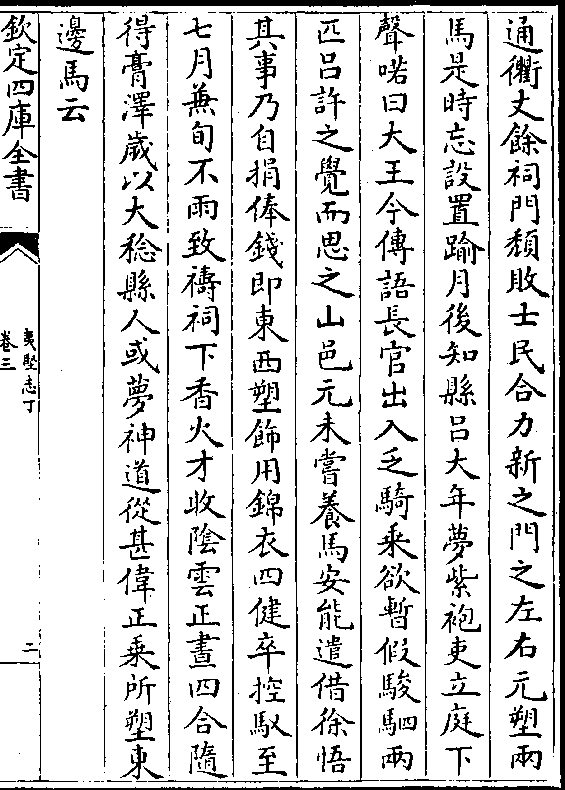 通衢丈餘祠門頽敗士民合力新之門之左右元塑兩
馬是時忘設置踰月後知縣吕大年夢紫袍吏立庭下
聲喏曰大王今傳語長官出入乏騎乘欲暫假駿駟兩
匹吕許之覺而思之山邑元未嘗養馬安能遣借徐悟
其事乃自捐俸錢即東西塑飾用錦衣四健卒控馭至
七月兼旬不雨致禱祠下香火才收陰雲正晝四合隨
得膏澤嵗以大稔縣人或夢神道從甚偉正乗所塑東
邊馬云
欽定四庫全書
夷堅志丁
卷三
二